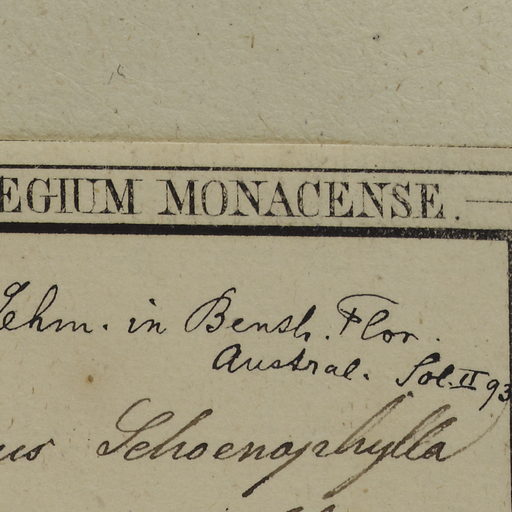 EGIUM MONACENSE.
Lehm. in Benth. Flor.
Austral. Vol. II 93
us Schoenophylla